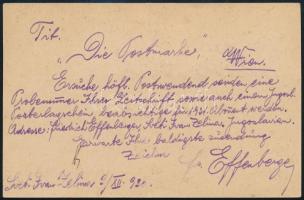 Tit.
"Die Postmarke",
Wien.
Ersuche höfl. Postwendend, senden eine
Probenummer Ihrer Zeitschrift sowie auch einen Jugosl.
Posterlagschein, beabsichtige für 1921. Abonent werden.
Adresse: Friedrich Effenberger, Sveti Ivan Zelina, Jugoslavien.
Erwarte Ihre baldigste Zusendung
Zeichne
Effenberger
Sveti Ivan Zelina 9/XII. 920.